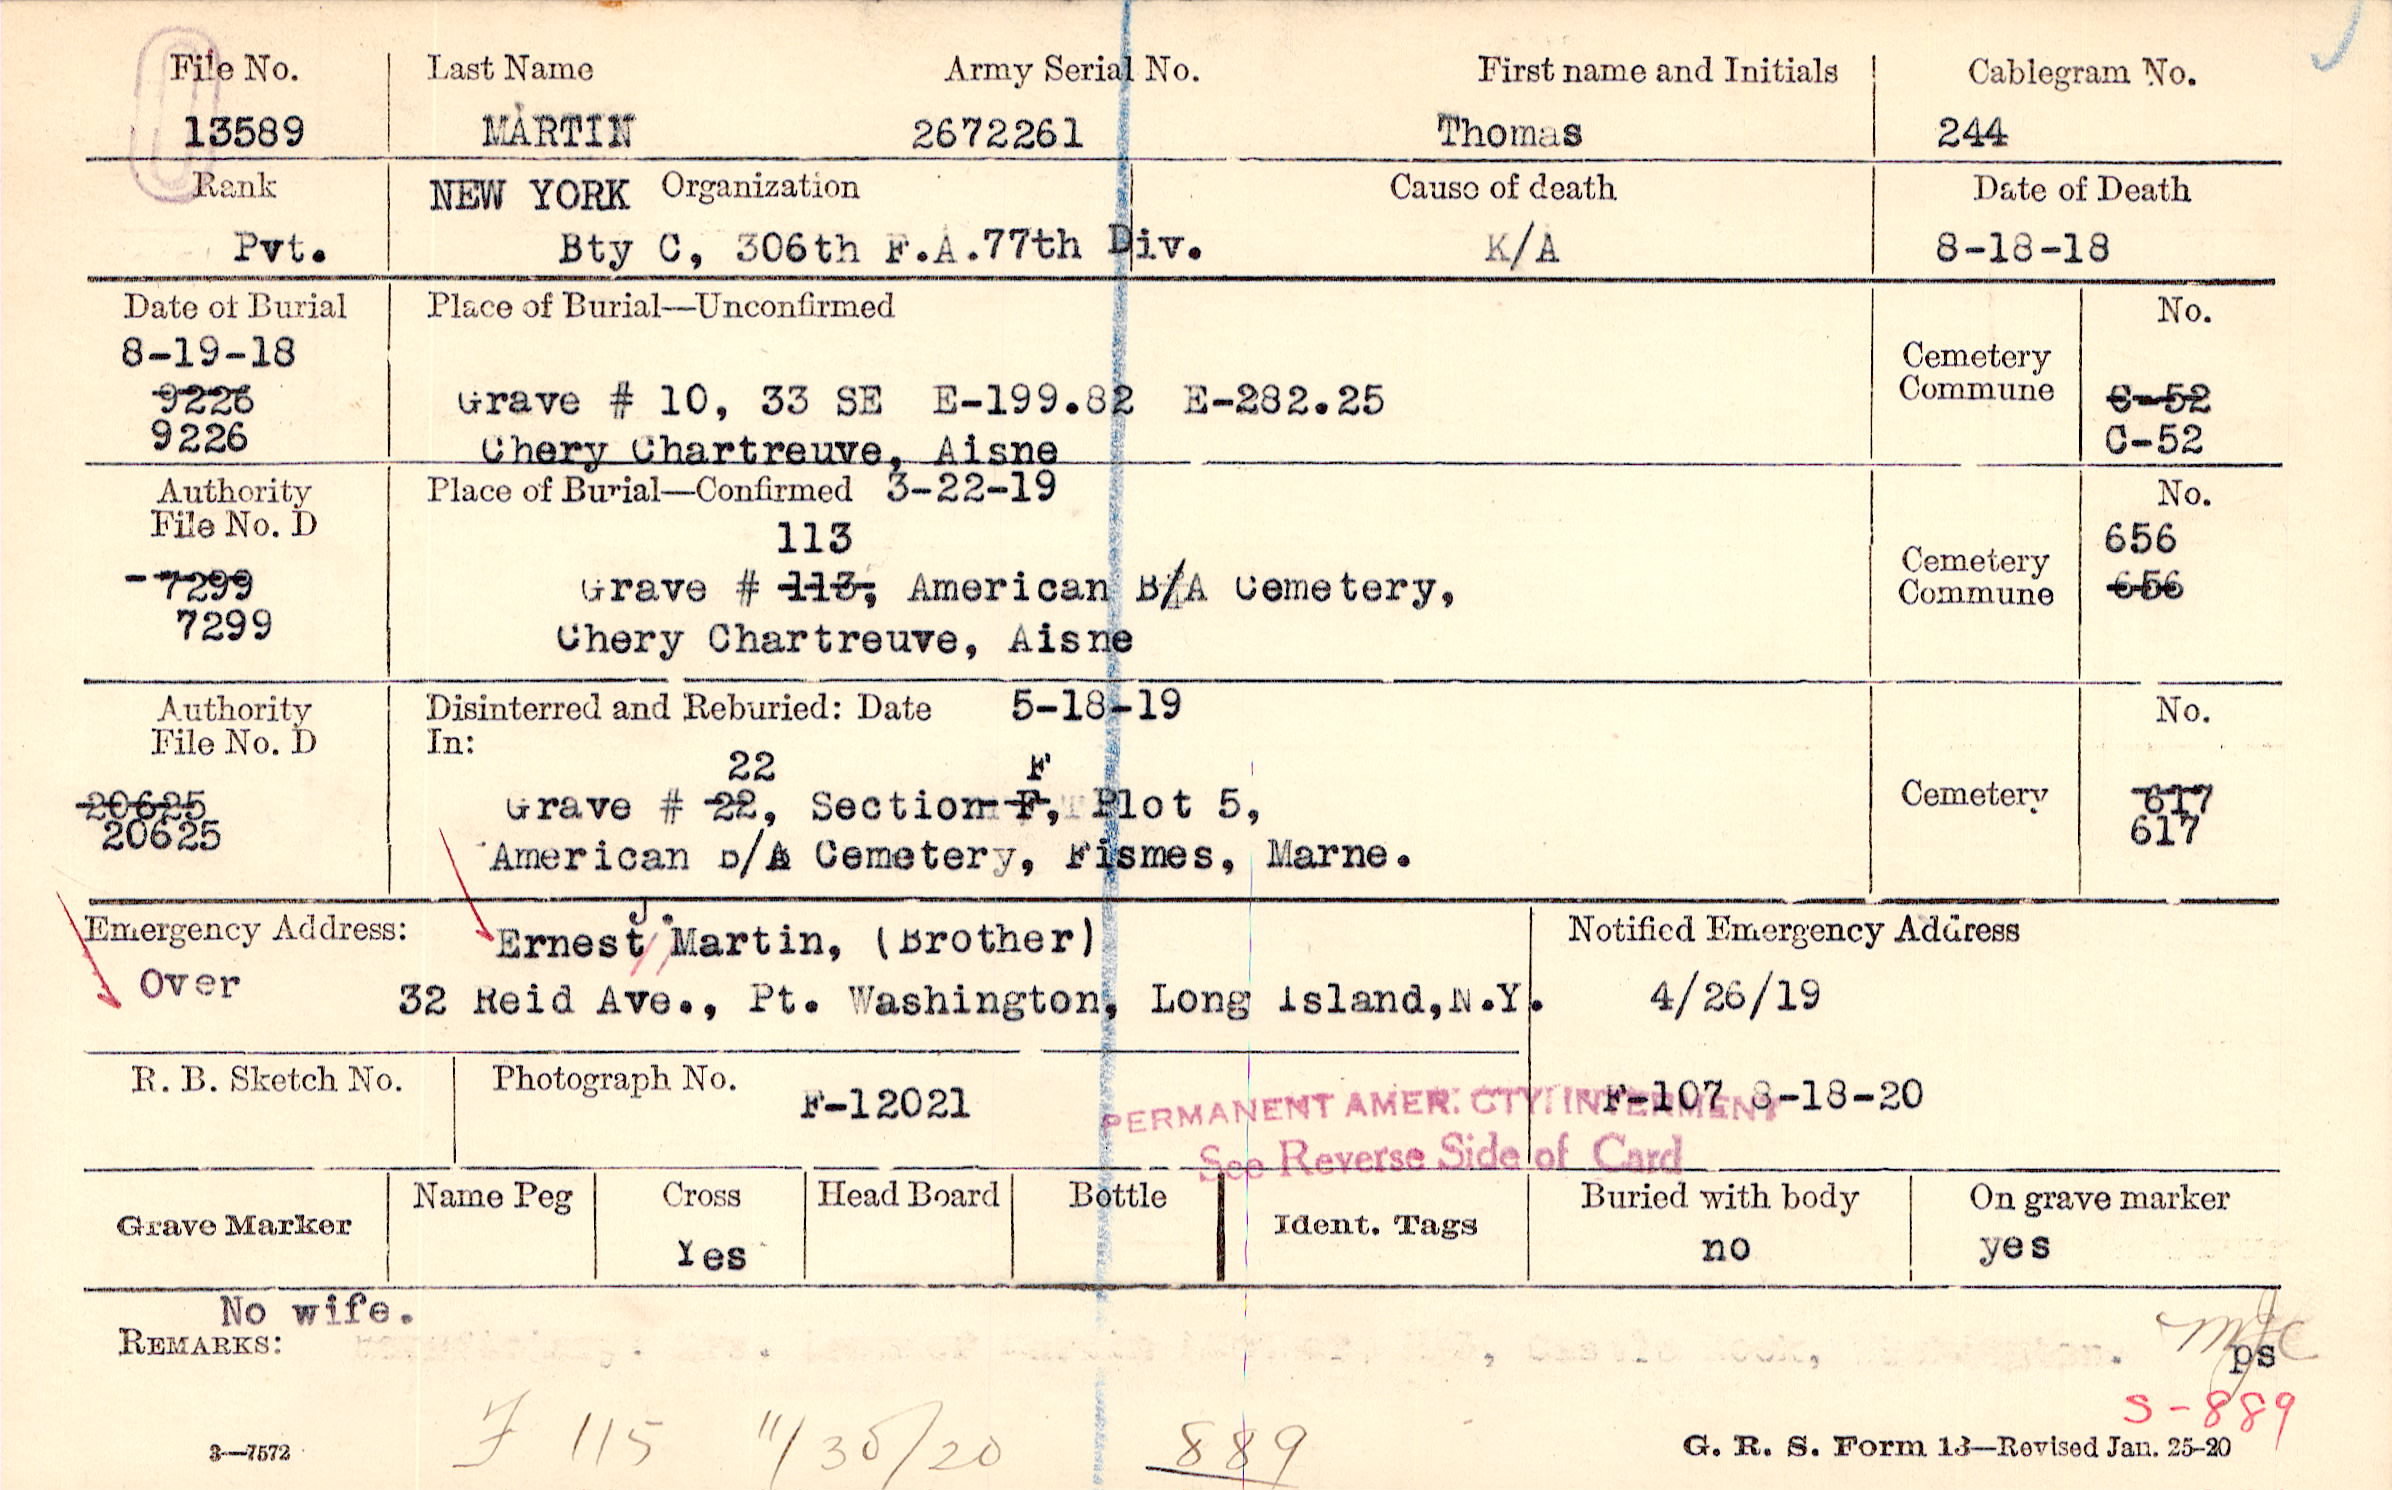 File No. Last Name Army Serial No. First name and Initials Cablegram No.
13589 MARTIN 2672261 Thomas 244
Rank NEW YORK Organization Cause of death Date of Death
Pvt. Bty C, 306th F.A.77th Div. K/A 8-18-18
Date of Burial Place of Burial—Unconfirmed No.
8-19-18
Cemetery
Commune
9226 Grave # 10, 33 SE E-199.82 E-282.25 C-52
9226 Chery Chartreuve, Aisne C-52
Authority Place of Burial—Confirmed 3-22-19 No.
File No. D
113 656
7299 Grave # 113, American B/A Cemetery, Cemetery
Commune 656
7299 Chery Chartreuve, Aisne
Authority Disinterred and Reburied: Date 5-18-19 No.
File No. D In:
22 F
20625 Grave # 22, Section F, Plot 5, Cemetery 617
20625 617
American B/A Cemetery, Fismes, Marne.
J.
Emergency Address: Ernest Martin, (Brother) Notified Emergency Address
Over 32 Reid Ave., Pt. Washington, Long Island,N.Y. 4/26/19
R. B. Sketch No. Photograph No. F-12021 F-107 8-18-20
PERMANENT AMER. CTY. INTERMENT
See Reverse Side of Card
Grave Marker Name Peg Cross Head Board Bottle Ident. Tags Buried with body On grave marker
Yes no yes
No wife.
REMARKS:
ps
S-889
F 115 11/30/20 889
3—7572 G. R. S. Form 13—Revised Jan. 25-20